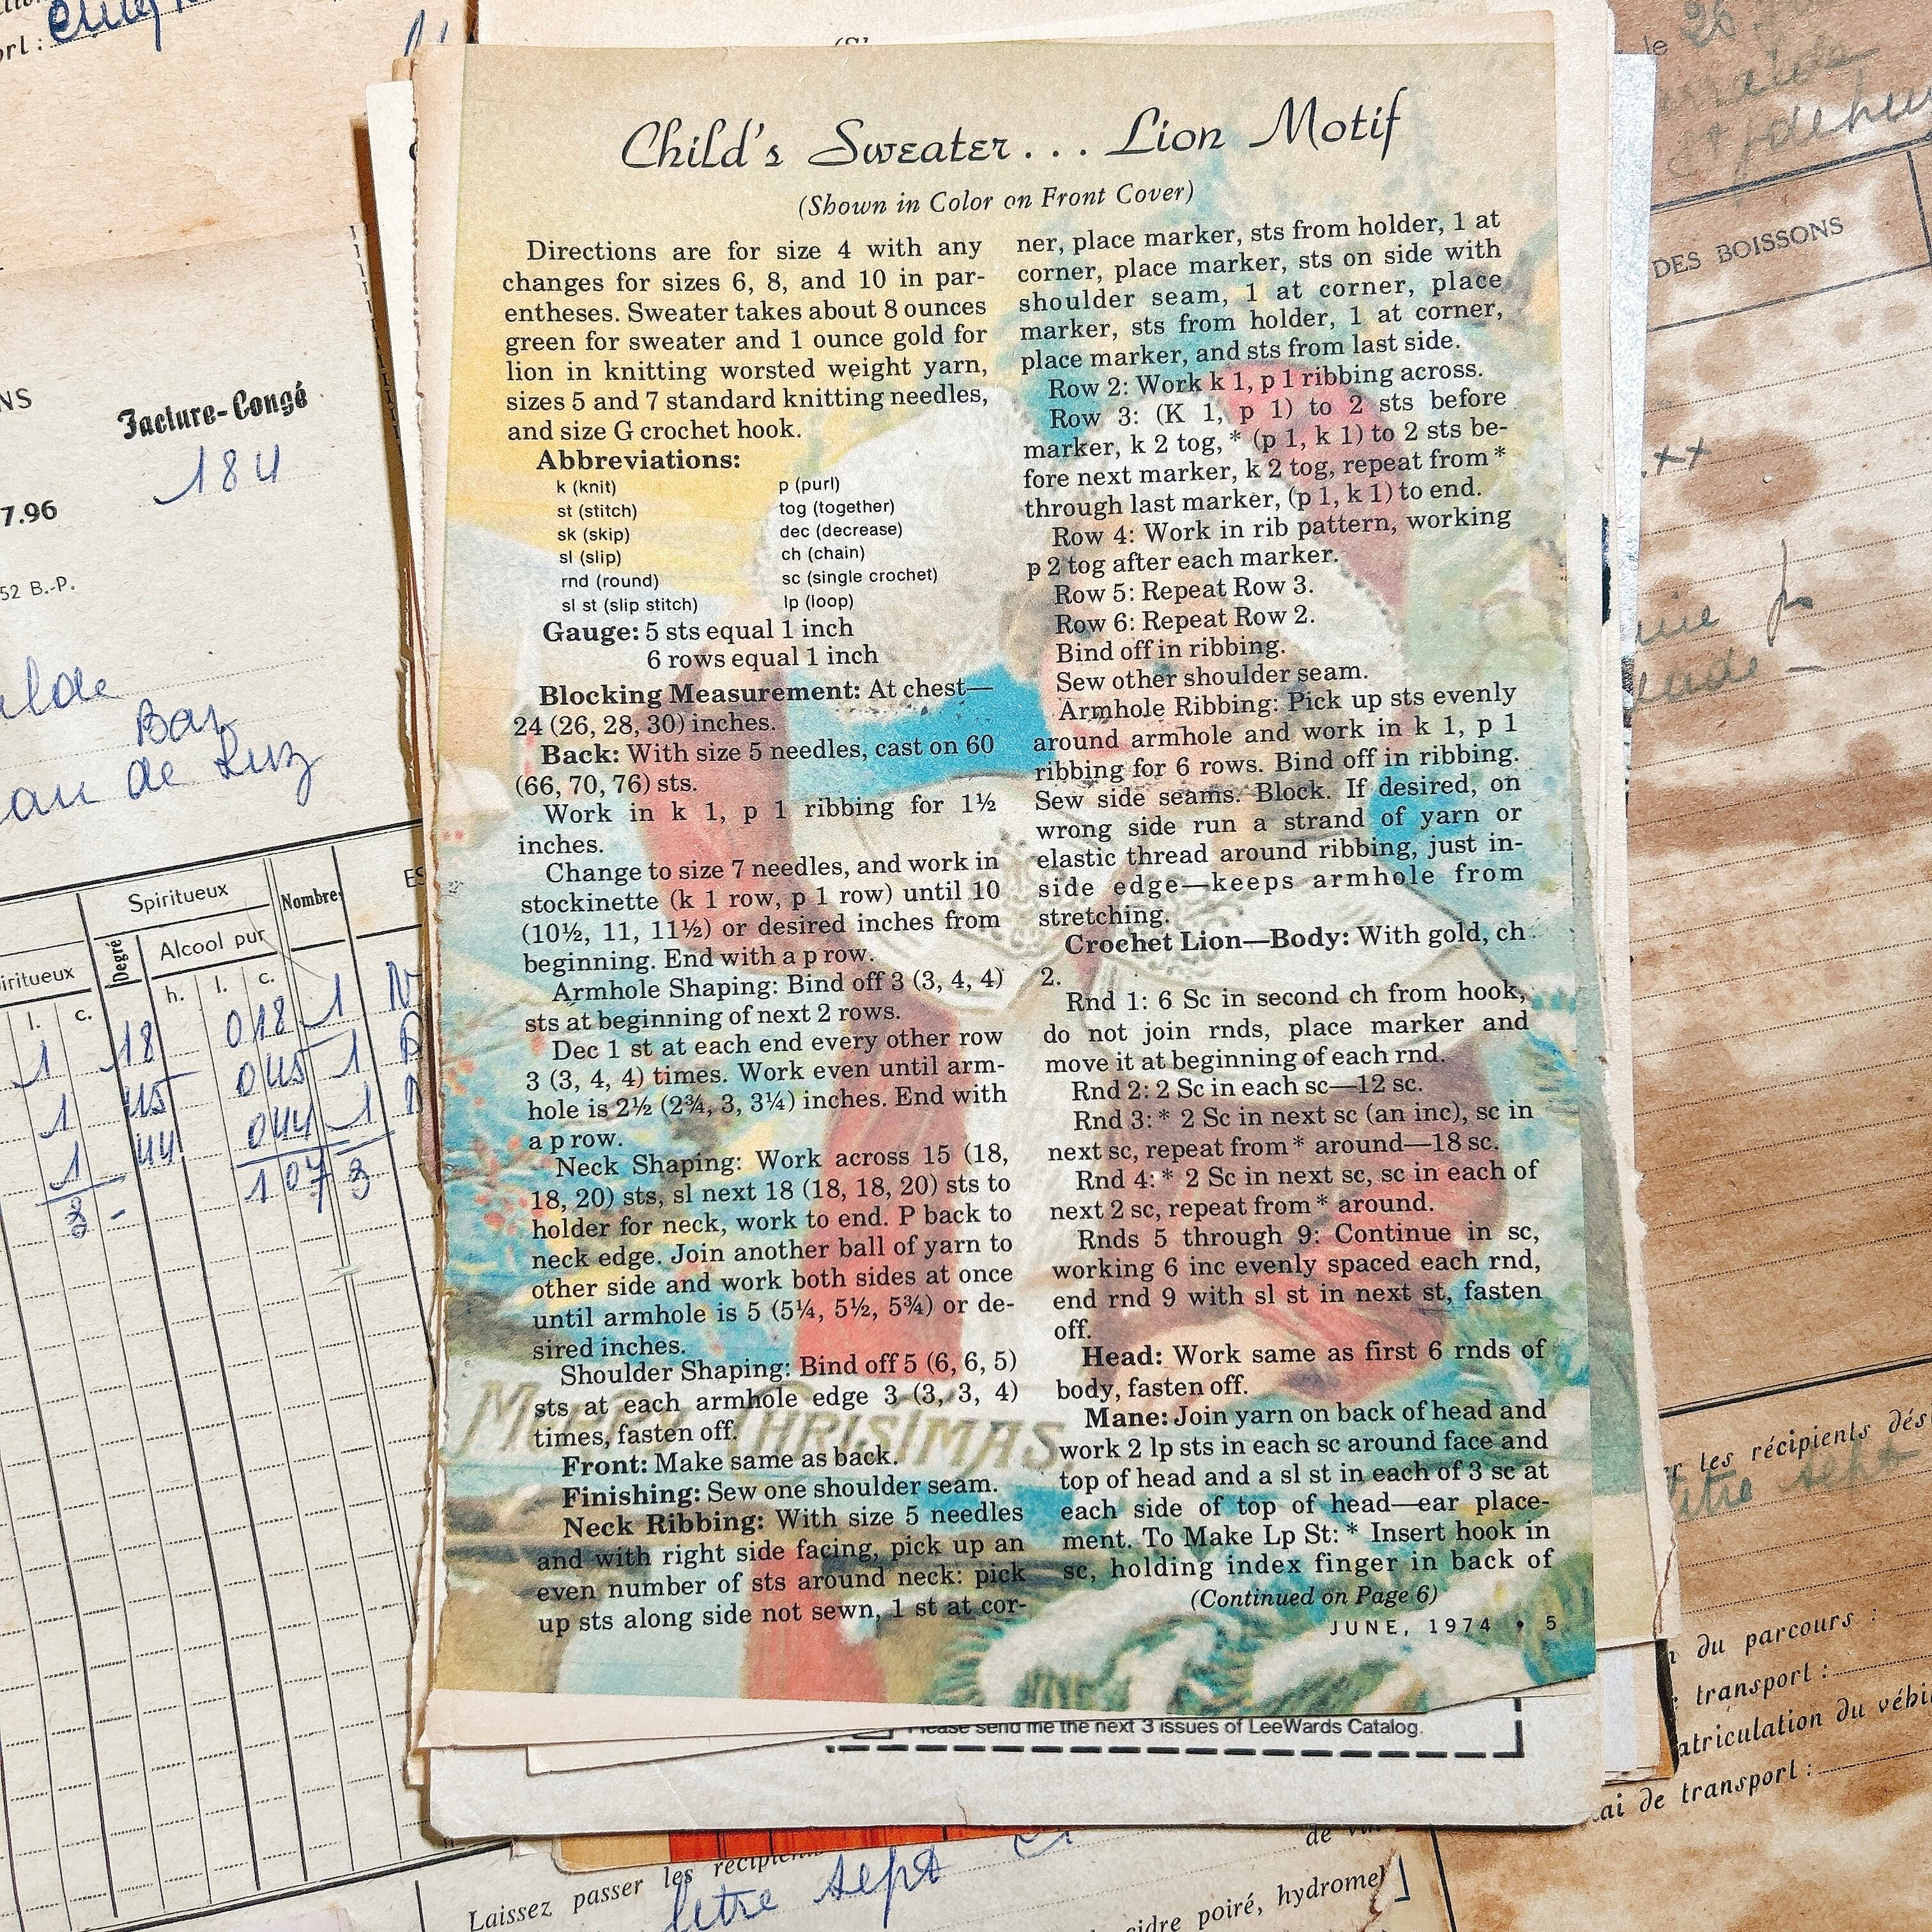 Child's Sweater... Lion Motif
(Shown in Color on Front Cover)
Directions are for size 4 with any
changes for sizes 6, 8, and 10 in par-
entheses. Sweater takes about 8 ounces
green for sweater and 1 ounce gold for
lion in knitting worsted weight yarn,
sizes 5 and 7 standard knitting needles,
and size G crochet hook.
Abbreviations:
k (knit) p (purl)
st (stitch) tog (together)
sk (skip) dec (decrease)
sl (slip) ch (chain)
rnd (round) sc (single crochet)
sl st (slip stitch) lp (loop)
Gauge: 5 sts equal 1 inch
6 rows equal 1 inch
Blocking Measurement: At chest—
24 (26, 28, 30) inches.
Back: With size 5 needles, cast on 60
(66, 70, 76) sts.
Work in k 1, p 1 ribbing for 1½
inches.
Change to size 7 needles, and work in
stockinette (k 1 row, p 1 row) until 10
(10½, 11, 11½) or desired inches from
beginning. End with a p row.
Armhole Shaping: Bind off 3 (3, 4, 4)
sts at beginning of next 2 rows.
Dec 1 st at each end every other row
3 (3, 4, 4) times. Work even until arm-
hole is 2½ (2¾, 3, 3¼) inches. End with
a p row.
Neck Shaping: Work across 15 (18,
18, 20) sts, sl next 18 (18, 18, 20) sts to
holder for neck, work to end. P back to
neck edge. Join another ball of yarn to
other side and work both sides at once
until armhole is 5 (5¼, 5½, 5¾) or de-
sired inches.
Shoulder Shaping: Bind off 5 (6, 6, 5)
sts at each armhole edge 3 (3, 3, 4)
times, fasten off.
Front: Make same as back.
Finishing: Sew one shoulder seam.
Neck Ribbing: With size 5 needles
and with right side facing, pick up an
even number of sts around neck: pick
up sts along side not sewn, 1 st at cor-
ner, place marker, sts from holder, 1 at
corner, place marker, sts on side with
shoulder seam, 1 at corner, place
marker, sts from holder, 1 at corner,
place marker, and sts from last side.
Row 2: Work k 1, p 1 ribbing across.
Row 3: (K 1, p 1) to 2 sts before
marker, k 2 tog, * (p 1, k 1) to 2 sts be-
fore next marker, k 2 tog, repeat from *
through last marker, (p 1, k 1) to end.
Row 4: Work in rib pattern, working
p 2 tog after each marker.
Row 5: Repeat Row 3.
Row 6: Repeat Row 2.
Bind off in ribbing.
Sew other shoulder seam.
Armhole Ribbing: Pick up sts evenly
around armhole and work in k 1, p 1
ribbing for 6 rows. Bind off in ribbing.
Sew side seams. Block. If desired, on
wrong side run a strand of yarn or
elastic thread around ribbing, just in-
side edge—keeps armhole from
stretching.
Crochet Lion—Body: With gold, ch
2.
Rnd 1: 6 Sc in second ch from hook,
do not join rnds, place marker and
move it at beginning of each rnd.
Rnd 2: 2 Sc in each sc—12 sc.
Rnd 3: * 2 Sc in next sc (an inc), sc in
next sc, repeat from * around—18 sc.
Rnd 4: * 2 Sc in next sc, sc in each of
next 2 sc, repeat from * around.
Rnds 5 through 9: Continue in sc,
working 6 inc evenly spaced each rnd,
end rnd 9 with sl st in next st, fasten
off.
Head: Work same as first 6 rnds of
body, fasten off.
Mane: Join yarn on back of head and
work 2 lp sts in each sc around face and
top of head and a sl st in each of 3 sc at
each side of top of head—ear place-
ment. To Make Lp St: * Insert hook in
sc, holding index finger in back of
(Continued on Page 6)
JUNE, 1974 • 5
MERRY CHRISTMAS
Please send me the next 3 issues of LeeWards Catalog.
Facture-Congé
184
7.96
52 B.-P.
Bar
de Luz
Spiritueux
Nombre
Degré
Alcool pur
h. l. c.
l. c.
1 18 018 1
1 45 045 1
1 44 044 1
3 - 107 3
DES BOISSONS
les récipients
du parcours :
transport :
de transport :
Laissez passer les
litre sept
cidre poiré, hydromel